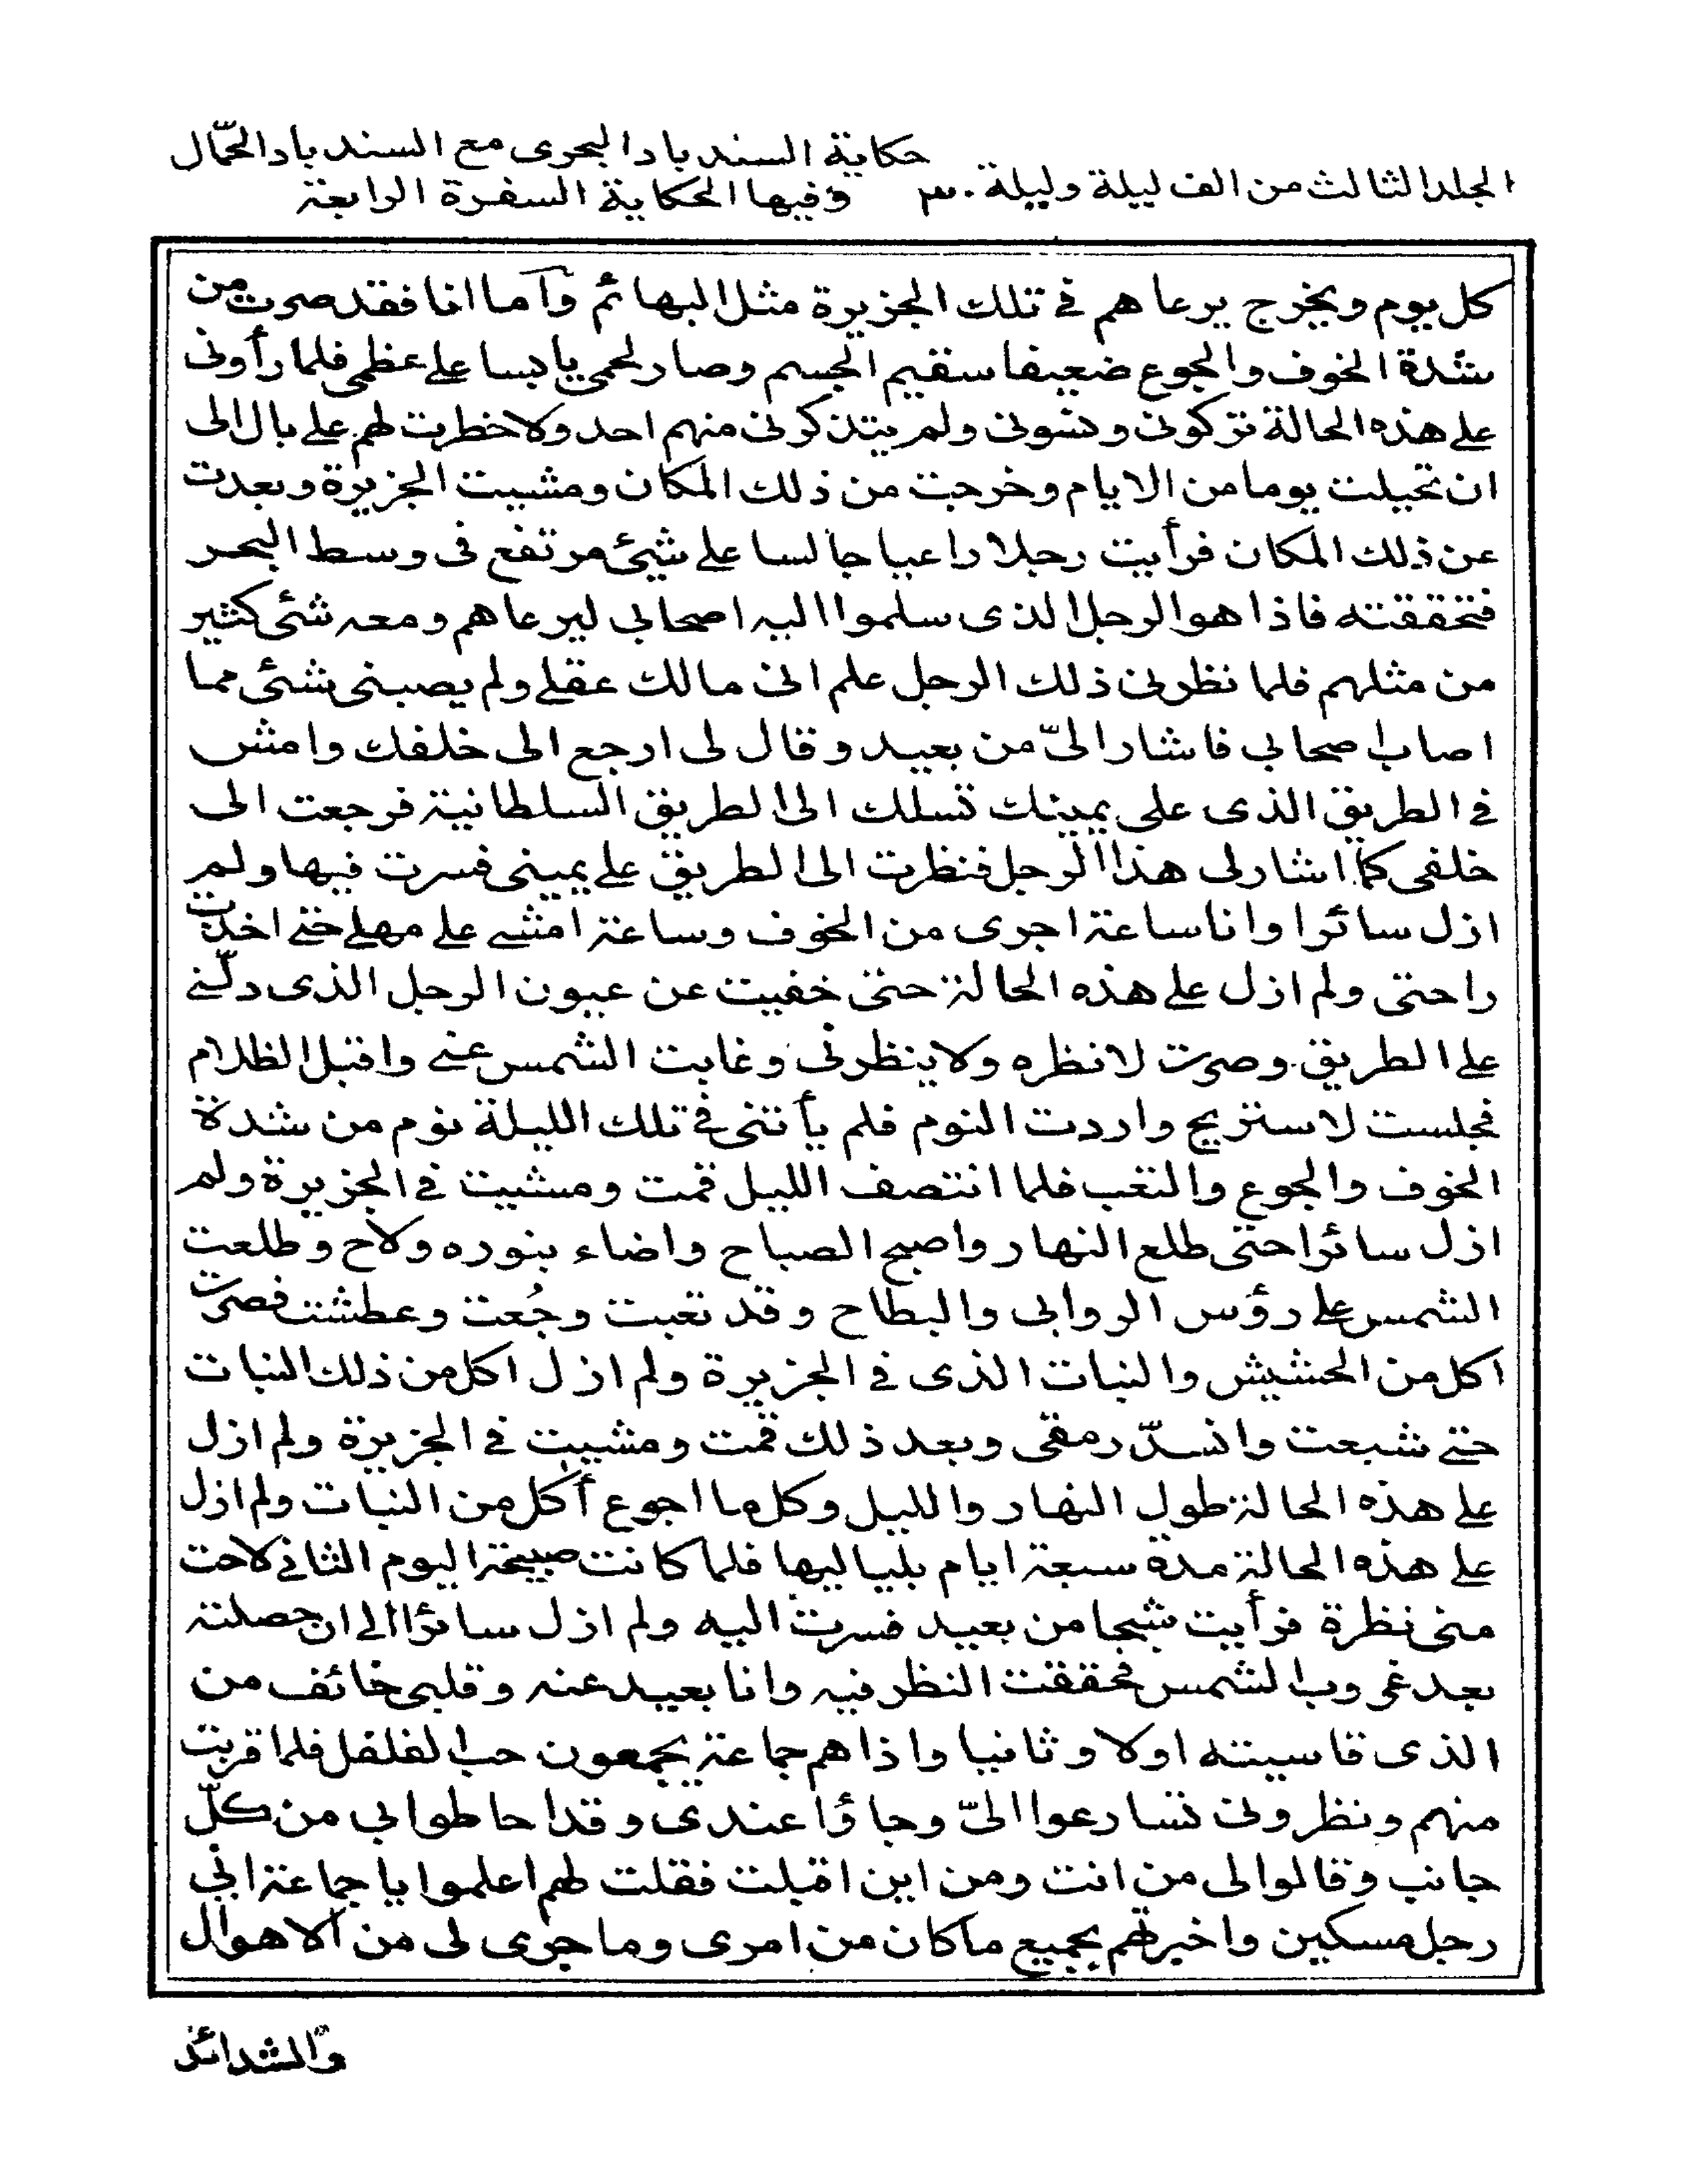 المجلد الثالث من الف ليلة وليلة ٣٠
حكاية السندباد البحرى مع السندباد الحمّال
وفيها الحكاية السفرة الرابعة
كل يوم ويخرج يرعاهم في تلك الجزيرة مثل البهائم وأما انا فقد صرت من
شدة الخوف والجوع ضعيفا سقيم الجسم وصار لحمي يابسا على عظمي فلما رأوني
على هذه الحالة تركوني ونسوني ولم يتذكرني منهم احد ولا خطرت لهم على بال الى
ان تحيلت يوما من الايام وخرجت من ذلك المكان ومشيت الجزيرة وبعدت
عن ذلك المكان فرأيت رجلا راعيا جالسا على شيئ مرتفع في وسط البحر
فتحققته فاذا هو الرجل الذى سلموا اليه اصحابي ليرعاهم ومعه شئ كثير
من مثلهم فلما نظرني ذلك الرجل علم اني مالك عقلي ولم يصبني شئ مما
اصاب اصحابي فاشار اليّ من بعيد وقال لى ارجع الى خلفك وامش
في الطريق الذى على يمينك تسلك الى الطريق السلطانية فرجعت الى
خلفى كما اشار لى هذا الرجل فنظرت الى الطريق على يميني فسرت فيها ولم
ازل سائرا وانا ساعة اجرى من الخوف وساعة امشي على مهلي حتى اخذت
راحتى ولم ازل على هذه الحالة حتى خفيت عن عيون الرجل الذى دلّني
على الطريق وصرت لا نظره ولا ينظرني وغابت الشمس عني واقبل الظلام
فجلست لاستريح واردت النوم فلم يأتني في تلك الليلة نوم من شدة
الخوف والجوع والتعب فلما انتصف الليل قمت ومشيت في الجزيرة ولم
ازل سائرا حتى طلع النهار واصبح الصباح واضاء بنوره ولاح وطلعت
الشمس على رؤس الروابى والبطاح وقد تعبت وجُعت وعطشت فصرت
اكل من الحشيش والنبات الذى في الجزيرة ولم ازل اكل من ذلك النبات
حتى شبعت وانسدّ رمقى وبعد ذلك قمت ومشيت في الجزيرة ولم ازل
على هذه الحالة طول النهار والليل وكل ما اجوع أكل من النبات ولم ازل
على هذه الحالة مدة سبعة ايام بلياليها فلما كانت صبيحة اليوم الثاني لاحت
منى نظرة فرأيت شبحا من بعيد فسرت اليه ولم ازل سائرا الى ان حصلته
بعد غروب الشمس فحققت النظر فيه وانا بعيد عنه وقلبى خائف من
الذى قاسيته اولا وثانيا واذا هم جماعة يجمعون حب الفلفل فلما قربت
منهم ونظروني تسارعوا اليّ وجاؤا عندى وقد احاطوا بي من كلّ
جانب وقالوا لى من انت ومن اين اقبلت فقلت لهم اعلموا يا جماعة اني
رجل مسكين واخبرتهم بجميع ما كان من امرى وما جرى لى من الاهوال
والشدائد